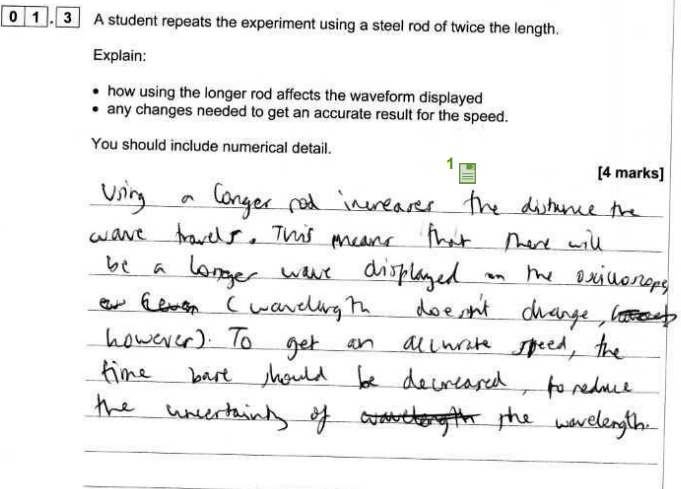 0 1 . 3 A student repeats the experiment using a steel rod of twice the length.
Explain:
• how using the longer rod affects the waveform displayed
• any changes needed to get an accurate result for the speed.
You should include numerical detail.
1
[4 marks]
Using a longer rod increases the distance the
wave travels. This means that there will
be a longer wave displayed on the oxilloscope
(wavelength doesn't change,
however). To get an accurate speed, the
time base should be decreased, to reduce
the uncertainty of wavelength the wavelength.